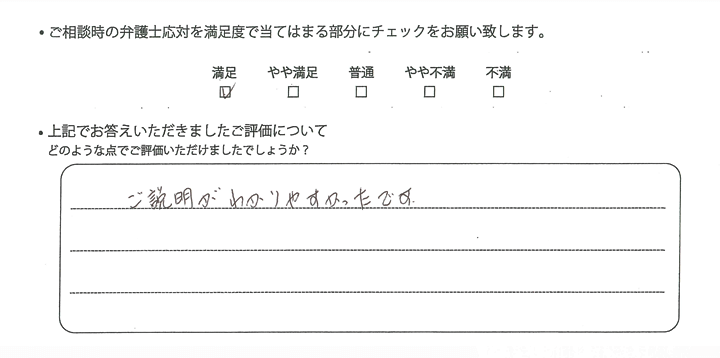 ・ご相談時の弁護士応対を満足度で当てはまる部分にチェックをお願い致します。
満足 やや満足 普通 やや不満 不満
☑ □ □ □ □
・上記でお答えいただきましたご評価について
どのような点でご評価いただけましたでしょうか？
ご説明がわかりやすかったです